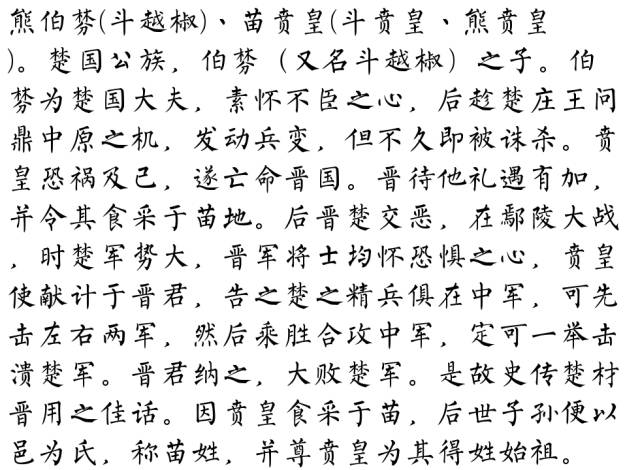 熊伯棼(斗越椒)、苗贲皇(斗贲皇、熊贲皇
)。楚国公族，伯棼（又名斗越椒）之子。伯
棼为楚国大夫，素怀不臣之心，后趁楚庄王问
鼎中原之机，发动兵变，但不久即被诛杀。贲
皇恐祸及己，遂亡命晋国。晋待他礼遇有加，
并令其食采于苗地。后晋楚交恶，在鄢陵大战
，时楚军势大，晋军将士均怀恐惧之心，贲皇
使献计于晋君，告之楚之精兵俱在中军，可先
击左右两军，然后乘胜合攻中军，定可一举击
溃楚军。晋君纳之，大败楚军。是故史传楚材
晋用之佳话。因贲皇食采于苗，后世子孙便以
邑为氏，称苗姓，并尊贲皇为其得姓始祖。